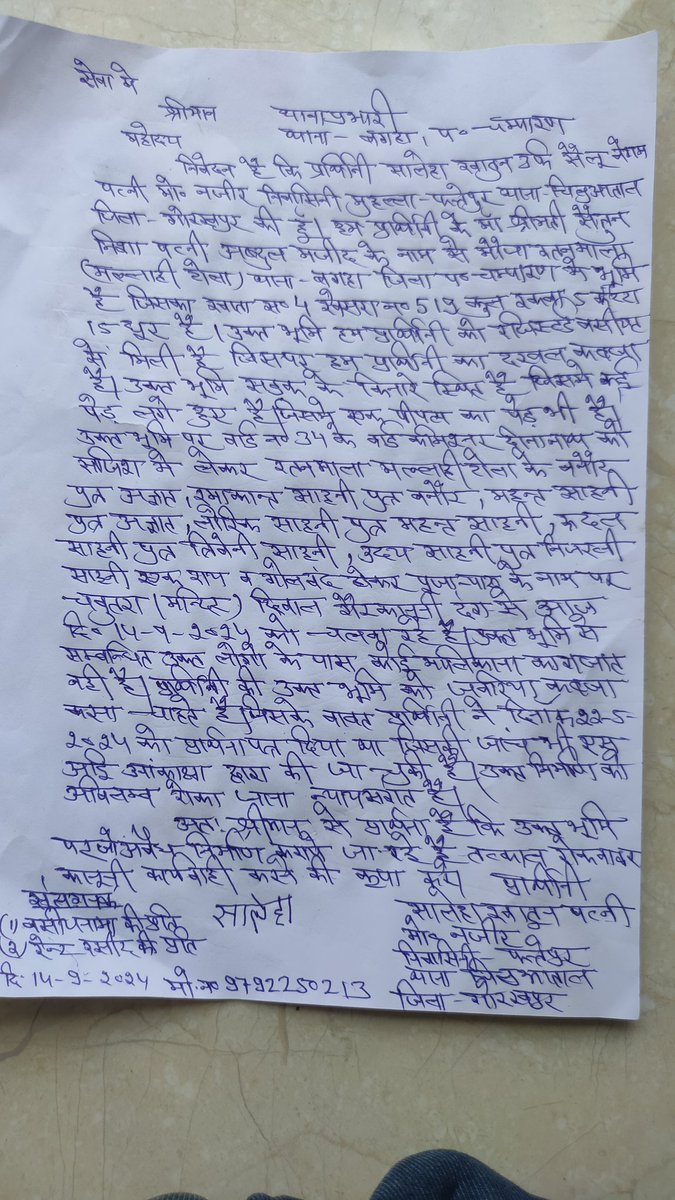 सेवा मे
श्रीमान थानाप्रभारी
महोदय थाना - बगहा, प० - चम्पारण
निवेदन है कि प्रार्थिनी सालेहा खातुन उर्फ सैलू बेगम
पत्नी मो० नजीर निवासिनी मुहल्ला - फत्तेपुर थाना चिलुआताल
जिला - गोरखपुर की हूँ। हम प्रार्थिनी के माँ श्रीमती जैतुन
निशा पत्नी अब्दुल मजीद के नाम से मौजा रत्नमाला
(मल्लाही टोला) थाना - बगहा जिला प० चम्पारण के भूमि
है जिसका खाता न० 4 खेसरा न० 519 कुल रकबा 5 कट्ठा
15 धुर है। उक्त भूमि हम प्रार्थिनी को रजिस्टर्ड वसीयत
में मिली है जिसपर हम प्रार्थिनी का दखल कब्जा
है। उक्त भूमि सड़क के किनारे स्थित है जिसमे कई
पेड़ लगे हुए है जिसमे एक पीपल का पेड़ भी है।
उक्त भूमि पर वार्ड न० 34 के वार्ड कमिश्नर दीनानाथ की
साजिश मे लेकर रत्नमाला मल्लाही टोला के
पुत्र अज्ञात, रमाकान्त साहनी पुत्र, महन्त साहनी
पुत्र अज्ञात, लौरिक साहनी पुत्र महन्त साहनी,
साहनी पुत्र त्रिवेनी साहनी, उदय साहनी पुत्र
साहनी एक राय व गोलबंद होकर पूजा पाठ के नाम पर
चबुतरा (मन्दिर) दिवाल गैरकानूनी ढंग से आज
दि० 14-9-2024 को चलवा रहे है। उक्त भूमि से
सम्बन्धित उक्त लोगो के पास कोई मालिकाना कागजात
नही है। प्रार्थिनी की उक्त भूमि को जबरिया कब्जा
करना चाहते है। जिसके बाबत प्रार्थिनी ने दिनांक 22-5-
2024 को प्रार्थनापत्र दिया था जिसकी जांच भी
द्वारा की जा चुकी है। उक्त निर्माण को
अविलम्ब रोका जाना न्यायसंगत है।
अतः श्रीमान् से प्रार्थना है कि उक्त भूमि
पर जो अवैध निर्माण कराये जा रहे है तत्काल रोकवाकर
कानूनी कार्यवाही करने की कृपा करे
प्रार्थिनी
सालेहा खातुन पत्नी
मो० नजीर
निवासिनी - फत्तेपुर
थाना चिलुआताल
जिला - गोरखपुर
सालेहा
संलग्नक
(1) वसीयतनामा की प्रति
(2) रेन्ट रसीद की प्रति
दि. 14-9-2024 मो. न० 9792250213